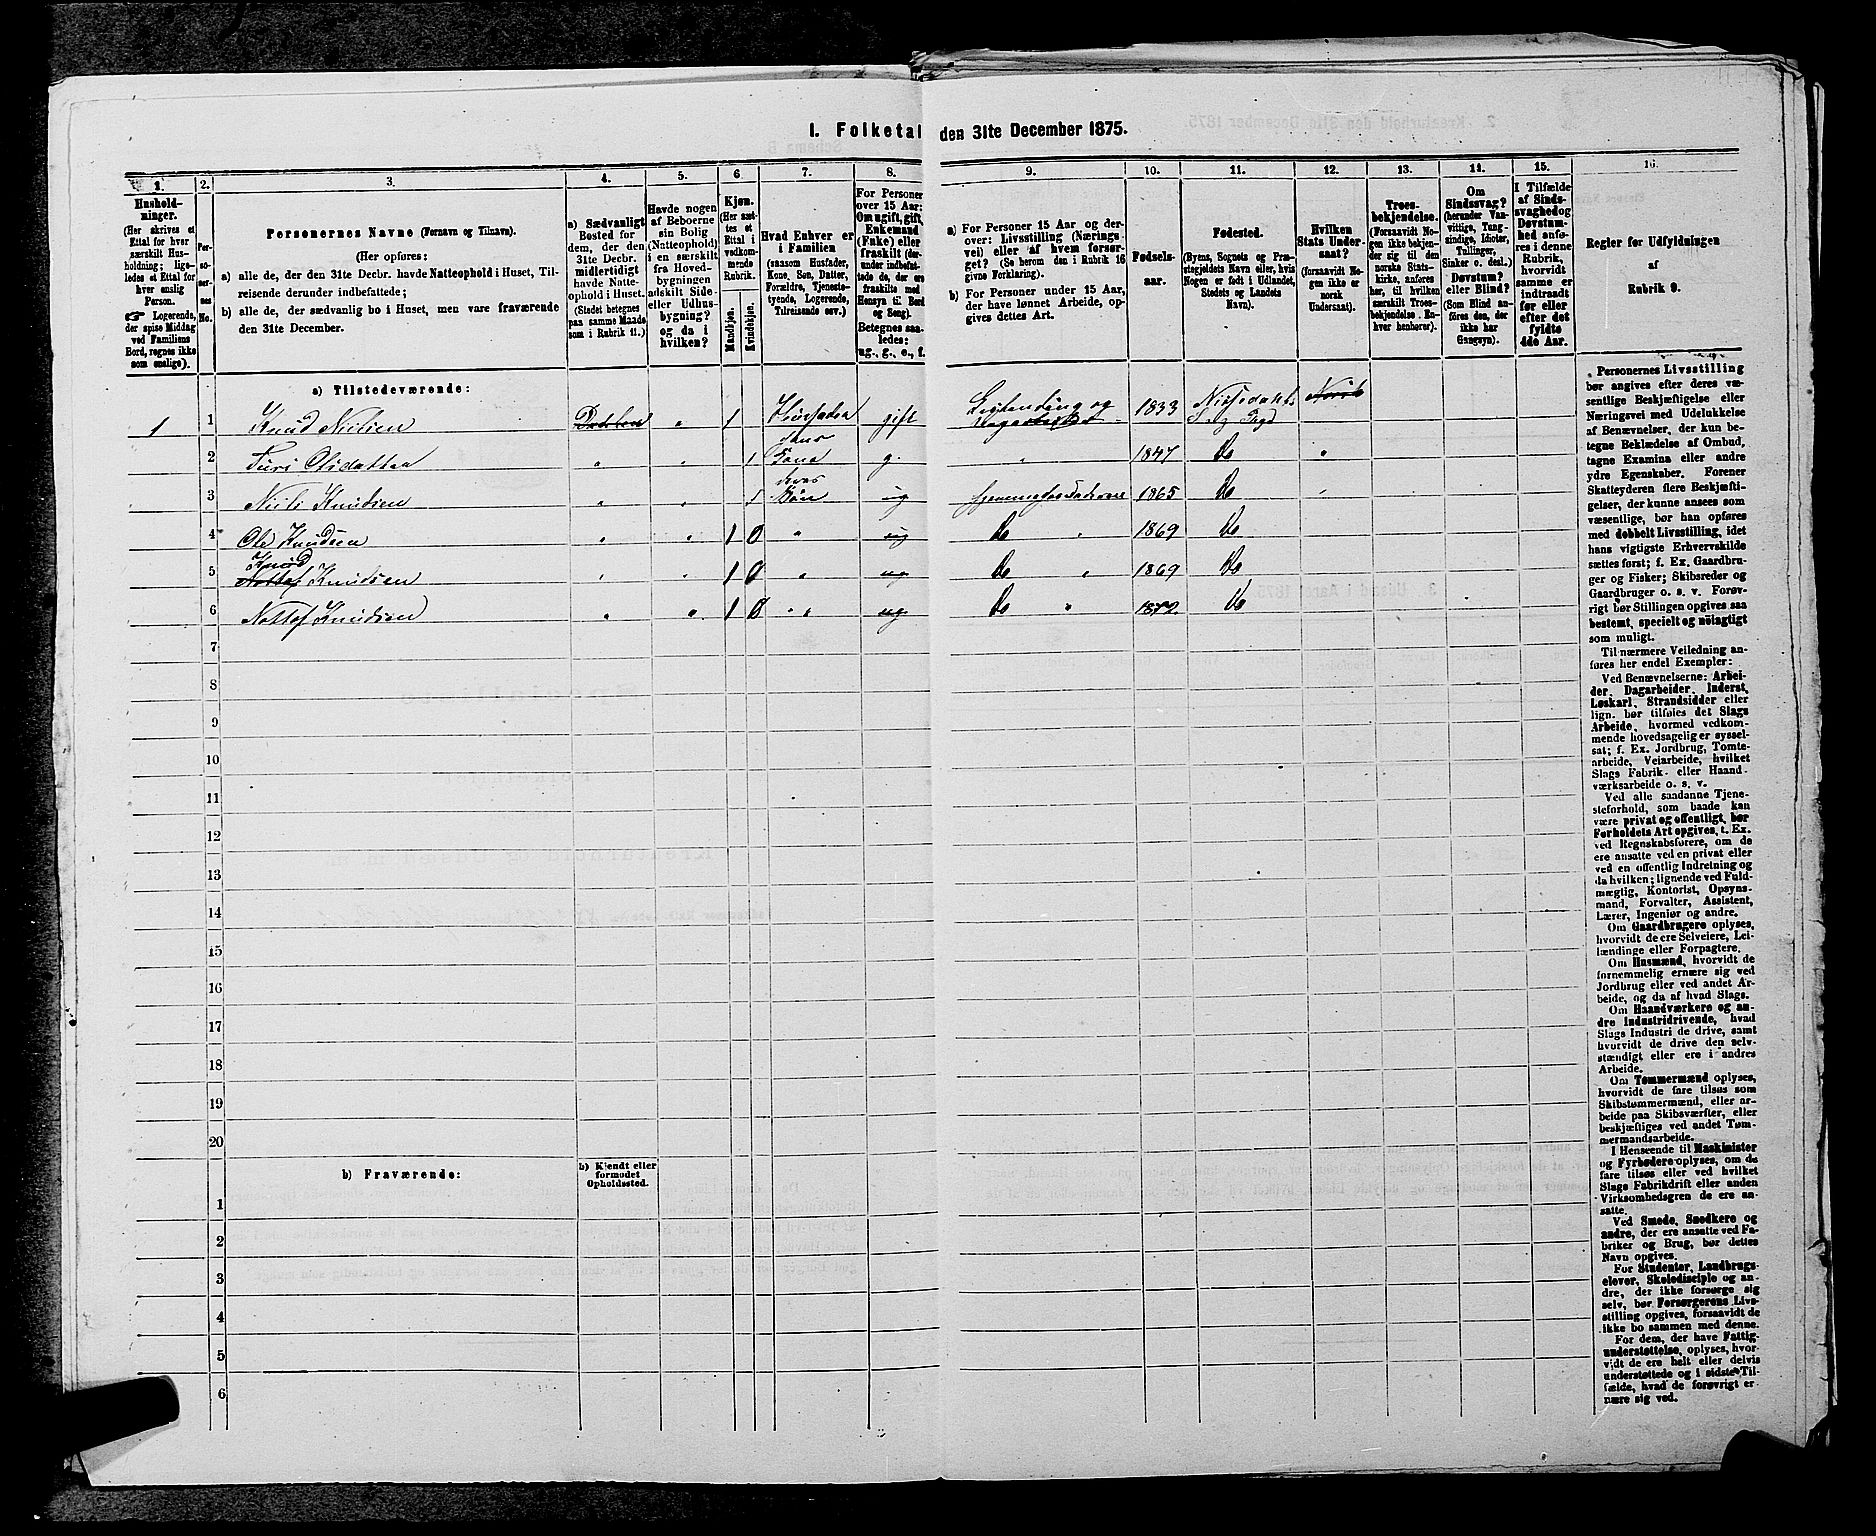 I. Folketal den 31te December 1875.
1.
Husholdninger.
(Her skrives et
Ettal for hver
særskilt Husholdning;
ligeledes et Ettal for
hver enslig
Person.
☞ Logerende,
der spise Middag
ved Familiens
Bord, regnes ikke
som enslige).
2.
Personernes No.
3.
Personernes Navne (Fornavn og Tilnavn).
(Her opføres:
a) alle de, der den 31te Decbr. havde Natteophold i Huset, Tilreisende derunder indbefattede;
b) alle de, der sædvanlig bo i Huset, men vare fraværende
den 31te December.
4.
a) Sædvanligt
Bosted for
dem, der den
31te Decbr.
midlertidigt
havde Natteophold i Huset.
(Stedet betegnes
paa samme Maade
som i Rubrik 11.)
5.
Havde nogen
af Beboerne
sin Bolig
(Natteophold)
i en særskilt
fra Hovedbygningen
adskilt Side-
eller Udhusbygning?
og da i
hvilken?
6.
Kjøn.
(Her sættes et
Ettal i
vedkommende
Rubrik.
Mandkjøn.
Kvindekjøn.
7.
Hvad Enhver er
i Familien
(saasom Husfader,
Kone, Søn, Datter,
Forældre, Tjenestetyende, Logerende,
Tilreisende osv.)
8.
For Personer
over 15 Aar:
Om ugift, gift,
Enkemand
(Enke) eller
fraskilt (derunder indbefattede de, der ere
fraskilte med
Hensyn til Bord
og Seng).
Betegnes saaledes:
ug., g., e., f.
9.
a) For Personer 15 Aar og derover: Livsstilling (Næringsvei) eller af hvem forsørget? (Se herom den i Rubrik 16
givne Forklaring).
b) For Personer under 15 Aar,
der have lønnet Arbeide, opgives dettes Art.
10.
Fødselsaar.
11.
Fødested.
(Byens, Sognets og Præstegjeldets Navn eller, hvis
Nogen er født i Udlandet,
Stedets og Landets
Navn).
12.
Hvilken
Stats Undersaat?
(forsaavidt Nogen ikke er
norsk
Undersaat).
13.
Troesbekjendelse.
(Forsaavidt Nogen ikke bekjender sig til den
norske Statskirke, anføres
her, til hvilken
særskilt Troesbekjendelse Enhver henhører).
14.
Om
Sindssvag?
(herunder Vanvittige, Tungsindige, Idioter,
Tullinger,
Sinker o. desl.)
Døvstum?
eller Blind?
(Som Blind anføres den, der
ikke har
Gangsyn).
15.
I Tilfælde
af Sindssvaghed og
Døvstumhed anføres i denne
Rubrik,
hvorvidt
samme er
indtraadt
før eller
efter det
fyldte
4de Aar.
16.
Regler for Udfyldningen
af
Rubrik 9.
a) Tilstedeværende:
1 1 Knud Nielsen 1 Husfader gift og 1833 Norsk
2 Turi Olsdatter 1 hans Kone g. 1847 Do
3 Niels Knudsen 1 deres Børn ug 1865 Do
4 Ole Knudsen 1 0 ug Do 1869 Do
5 Knud Knudsen 1 0 ug Do 1869 Do
6 Nottof Knudsen 1 0 ug Do 1872 Do
7
8
9
10
11
12
13
14
15
16
17
18
19
20
b) Fraværende:
b) Kjendt eller
formodet
Opholdssted.
1
2
3
4
5
6
Personernes Livsstilling
bør angives efter deres væsentlige Beskjæftigelse eller
Næringsvei med Udelukkelse
af Benævnelser, der kun betegne Beklædelse af Ombud,
tagne Examina eller andre
ydre Egenskaber. Forener
Skatteyderen flere Beskjæftigelser, der kunne ansees som
væsentlige, bør han opføres
med dobbelt Livsstilling, idet
hans vigtigste Erhvervskilde
sættes først; f. Ex. Gaardbruger og Fisker; Skibsreder og
Gaardbruger o. s. v. Forøvrigt bør Stillingen opgives saa
bestemt, specielt og nøiagtigt
som muligt.
Til nærmere Veiledning anføres her endel Exempler:
Ved Benævnelserne: Arbeider, Dagarbeider, Inderst,
Løskarl, Strandsidder eller
lign. bør tilføies det Slags
Arbeide, hvormed vedkommende hovedsagelig er sysselsat; f. Ex. Jordbrug, Tomtearbeide, Veiarbeide, hvilket
Slags Fabrik- eller Haandværksarbeide o. s. v.
Ved alle saadanne Tjenesteforhold, som baade kan
være privat og offentligt, bør
Forholdets Art opgives, t. Ex.
ved Regnskabsførere, om de
ere ansatte ved en privat eller
ved en offentlig Indretning og
da hvilken; lignende ved Fuldmægtig, Kontorist, Opsynsmand, Forvalter, Assistent,
Lærer, Ingeniør og andre.
Om Gaardbrugere oplyses,
hvorvidt de ere Selveiere, Leilændinge eller Forpagtere.
Om Husmænd, hvorvidt de
fornemmelig ernære sig ved
Jordbrug eller ved andet Arbeide, og da af hvad Slags.
Om Haandværkere og andre Industridrivende, hvad
Slags Industri de drive, samt
hvorvidt de drive den selvstændigt eller ere i andres
Arbeide.
Om Tømmermænd oplyses,
hvorvidt de fare tilsøs som
Skibstømmermænd, eller arbeide paa Skibsværfter, eller
beskjæftiges ved andet Tømmermandsarbeide.
I Henseende til Maskinister
og Fyrbødere oplyses, om de
fare tilsøs eller ved hvilket
Slags Fabrikdrift eller anden
Virksomhedsgren de ere ansatte.
Ved Smede, Snedkere og
andre, der ere ansatte ved Fabriker og Brug, bør dettes
Navn opgives.
For Studenter, Landbrugselever, Skoledisciple og andre, der ikke forsørge sig
selv, bør Forsørgerens Livsstilling opgives, forsaavidt de
ikke bo sammen med denne.
For dem, der have Fattigunderstøttelse, oplyses, hvorvidt de ere helt eller delvis
understøttede og i sidste Tilfælde, hvad de forøvrigt ernære sig ved.